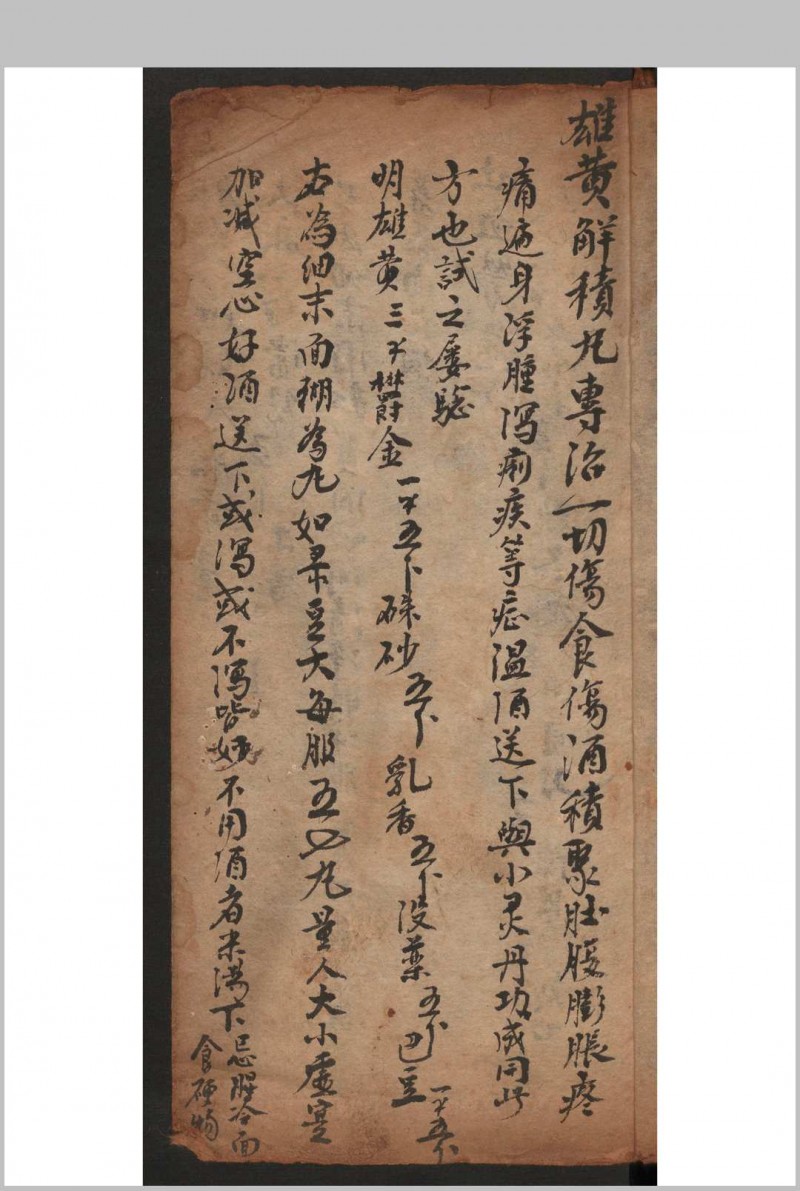 雄黄解積丸專治一切傷食傷酒積聚肚腹膨脹疼
痛遍身浮腫瀉痢疾等症温酒送下與小灵丹功成同此
方也試之屡驗
明雄黄三欝金五硃砂五乳香五没藥五巴豆五
右為細末面糊為丸如菉豆大每服五七丸量人大小虚寔
加减空心好酒送下或瀉或不瀉皆妙不用酒者米湯下忌腥冷面
食硬物